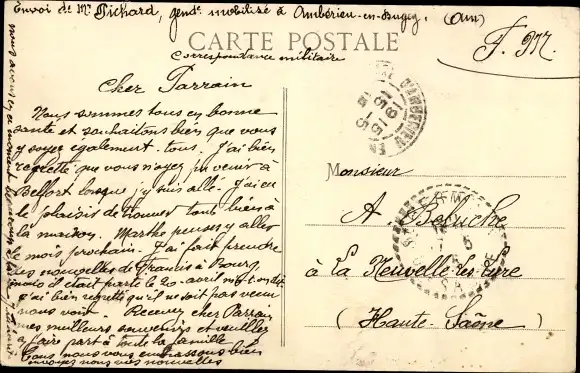 Envoi de Mr Pichard, gende mobilisé à Ambérieu-en-Bugey. (Ain)
CARTE POSTALE
correspondance militaire
F.M.
Cher Parrain
Nous sommes tous en bonne
santé et souhaitons bien que vous
y soyez également tous. J'ai bien
regretté que vous n'ayez pu venir à
Belfort lorsque j'y suis allé. J'ai eu
le plaisir de trouver tous bien à
la maison. Marthe pense y aller
le mois prochain. J'ai fait prendre
des nouvelles de Francis à Bourg,
mais il était parti le 20 avril m'a-t-on dit
j'ai bien regretté qu'il ne soit pas venu
nous voir. Recevez cher Parrain
mes meilleurs souvenirs et veuillez
en faire part à toute la famille
Tous nous vous embrassons bien
envoyez nous vos nouvelles
Monsieur
A. Beluche
à La Neuvelle-les-Lure
(Haute-Saône)